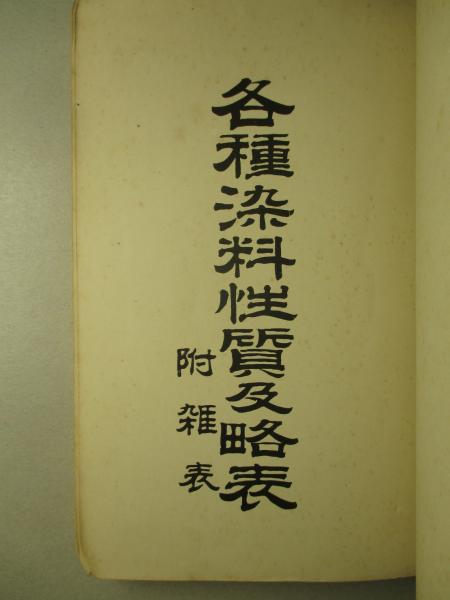 各種染料性質及略表
附雑表